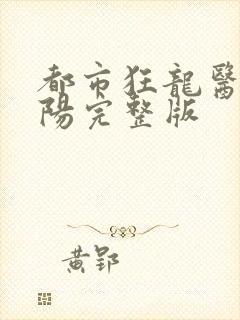 都市狂龍醫
陽完整版
黃郢